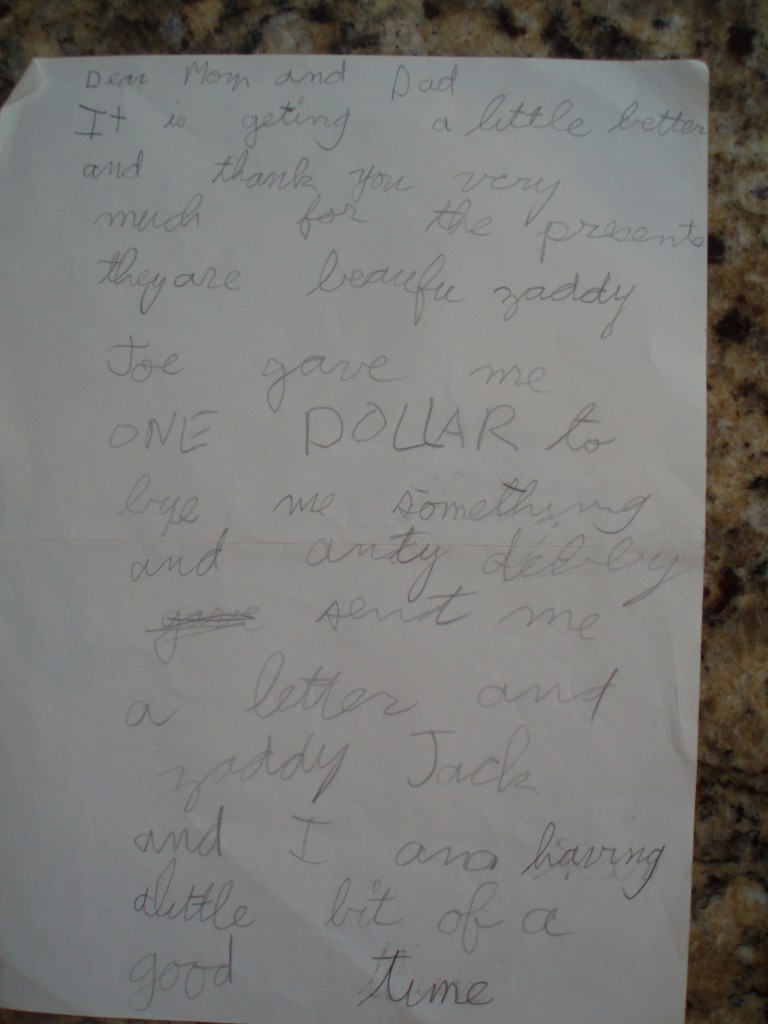 Dear Mom and Dad
It is geting a little better
and thank you very
much for the presents
they are beaufu zaddy
Joe gave me
ONE DOLLAR to
bye me something
and anty debby
gave sent me
a letter and
zaddy Jack
and I am having
alittle bit of a
good time